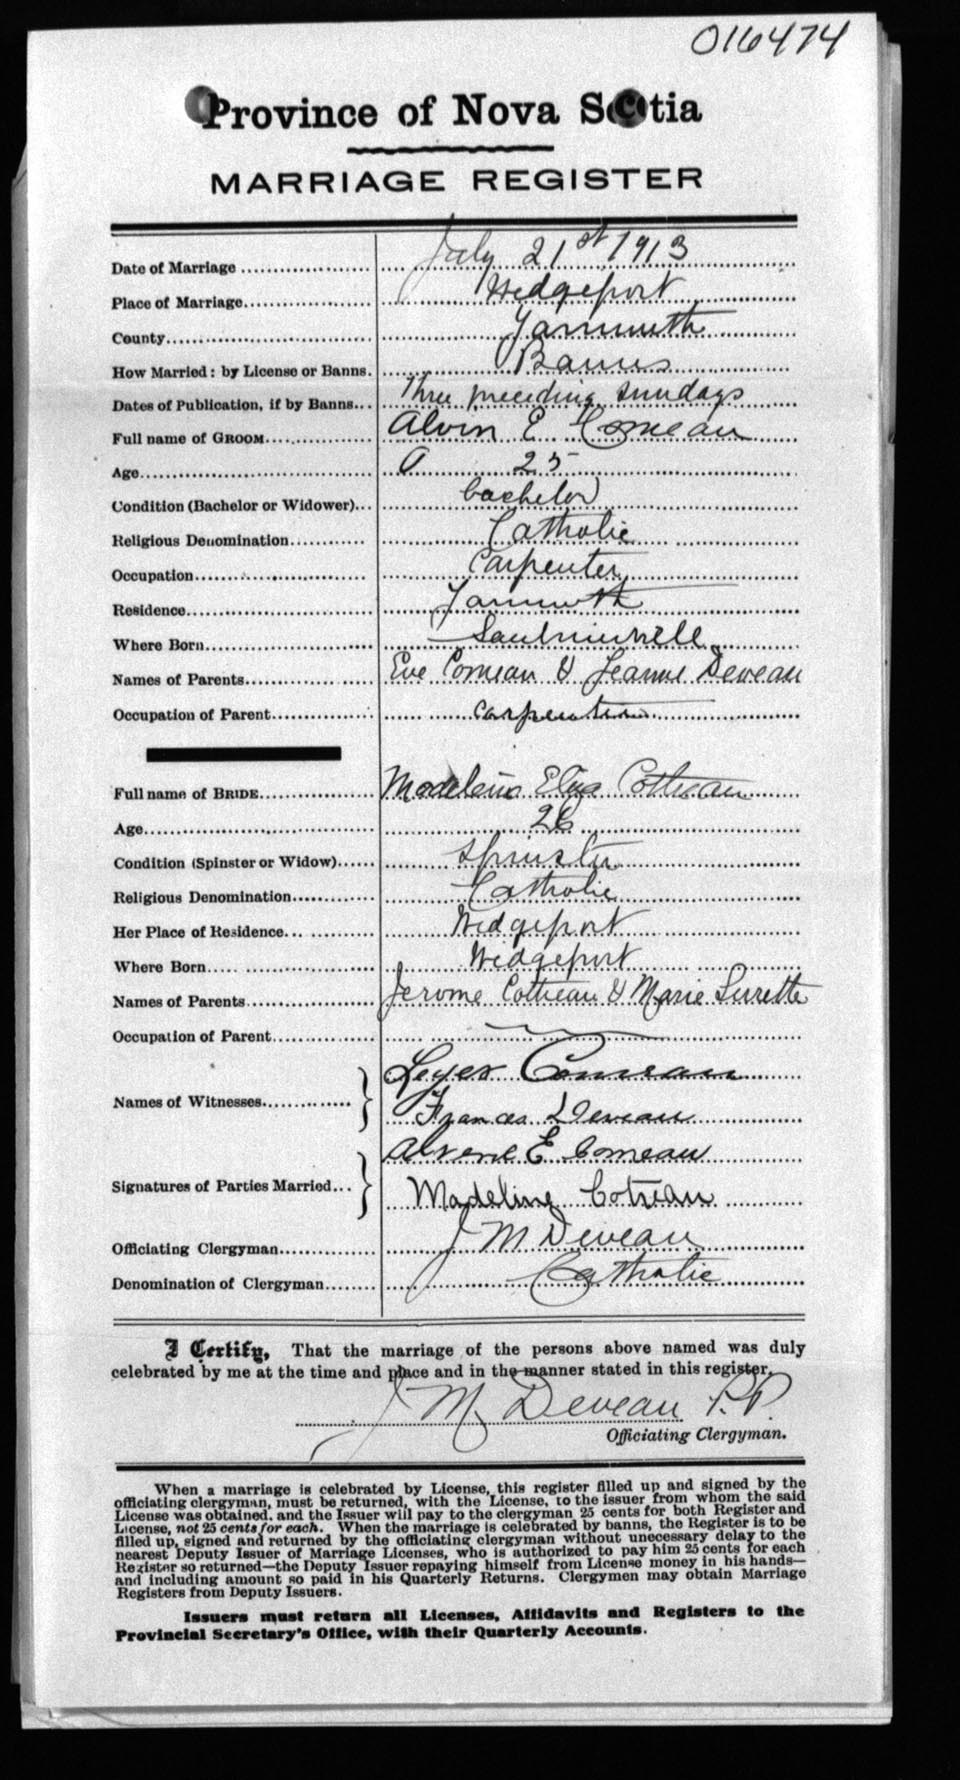 016474
Province of Nova Scotia
MARRIAGE REGISTER
Date of Marriage ................ July 21st 1913
Place of Marriage................ Wedgeport
County................ Yarmouth
How Married: by License or Banns. Banns
Dates of Publication, if by Banns... Three preceding Sundays
Full name of GROOM................ Alvin E Comeau
Age................ 25
Condition (Bachelor or Widower)... bachelor
Religious Denomination............ Catholic
Occupation................ Carpenter
Residence................ Yarmouth
Where Born................ Saulnierville
Names of Parents................ Comeau & Jeanne Deveau
Occupation of Parent................ Carpenter
Full name of BRIDE................ Eliza Cottreau
Age................ 26
Condition (Spinster or Widow)...... Spinster
Religious Denomination............ Catholic
Her Place of Residence... ............ Wedgeport
Where Born.... ................ Wedgeport
Names of Parents................ Jerome Cottreau & Marie Surette
Occupation of Parent................
Names of Witnesses............... Comeau
Frances Deveau
Signatures of Parties Married... E Comeau
Madeline Cotreau
Officiating Clergyman............... J M Deveau
Denomination of Clergyman........ Catholic
I Certify, That the marriage of the persons above named was duly
celebrated by me at the time and place and in the manner stated in this register.
J M Deveau P.P.
Officiating Clergyman.
When a marriage is celebrated by License, this register filled up and signed by the
officiating clergyman, must be returned, with the License, to the issuer from whom the said
License was obtained, and the Issuer will pay to the clergyman 25 cents for both Register and
License, not 25 cents for each. When the marriage is celebrated by banns, the Register is to be
filled up, signed and returned by the officiating clergyman without unnecessary delay to the
nearest Deputy Issuer of Marriage Licenses, who is authorized to pay him 25 cents for each
Register so returned—the Deputy Issuer repaying himself from License money in his hands—
and including amount so paid in his Quarterly Returns. Clergymen may obtain Marriage
Registers from Deputy Issuers.
Issuers must return all Licenses, Affidavits and Registers to the
Provincial Secretary's Office, with their Quarterly Accounts.